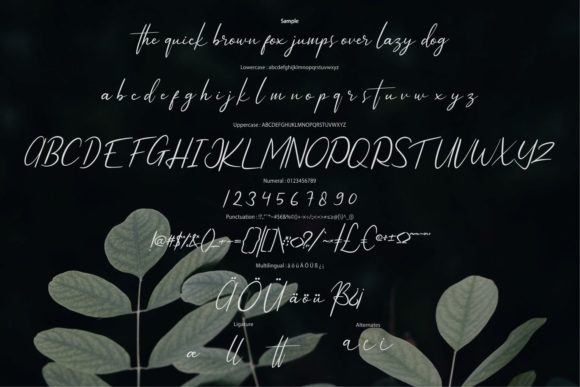 Sample
the quick brown fox jumps over lazy dog
Lowercase : abcdefghijklmnopqrstuvwxyz
a b c d e f g h i j k l m n o p q r s t u v w x y z
Uppercase : ABCDEFGHIJKLMNOPQRSTUVWXYZ
ABCDEFGHIJKLMNOPQRSTUVWXYZ
Numeral : 0123456789
1 2 3 4 5 6 7 8 9 0
Punctuation :
Multilingual : ä ö ü Ä Ö Ü ß ¿ ¡
Ä Ö Ü ä ö ü ß ¿ ¡
Ligature Alternates
æ ll tt a c i